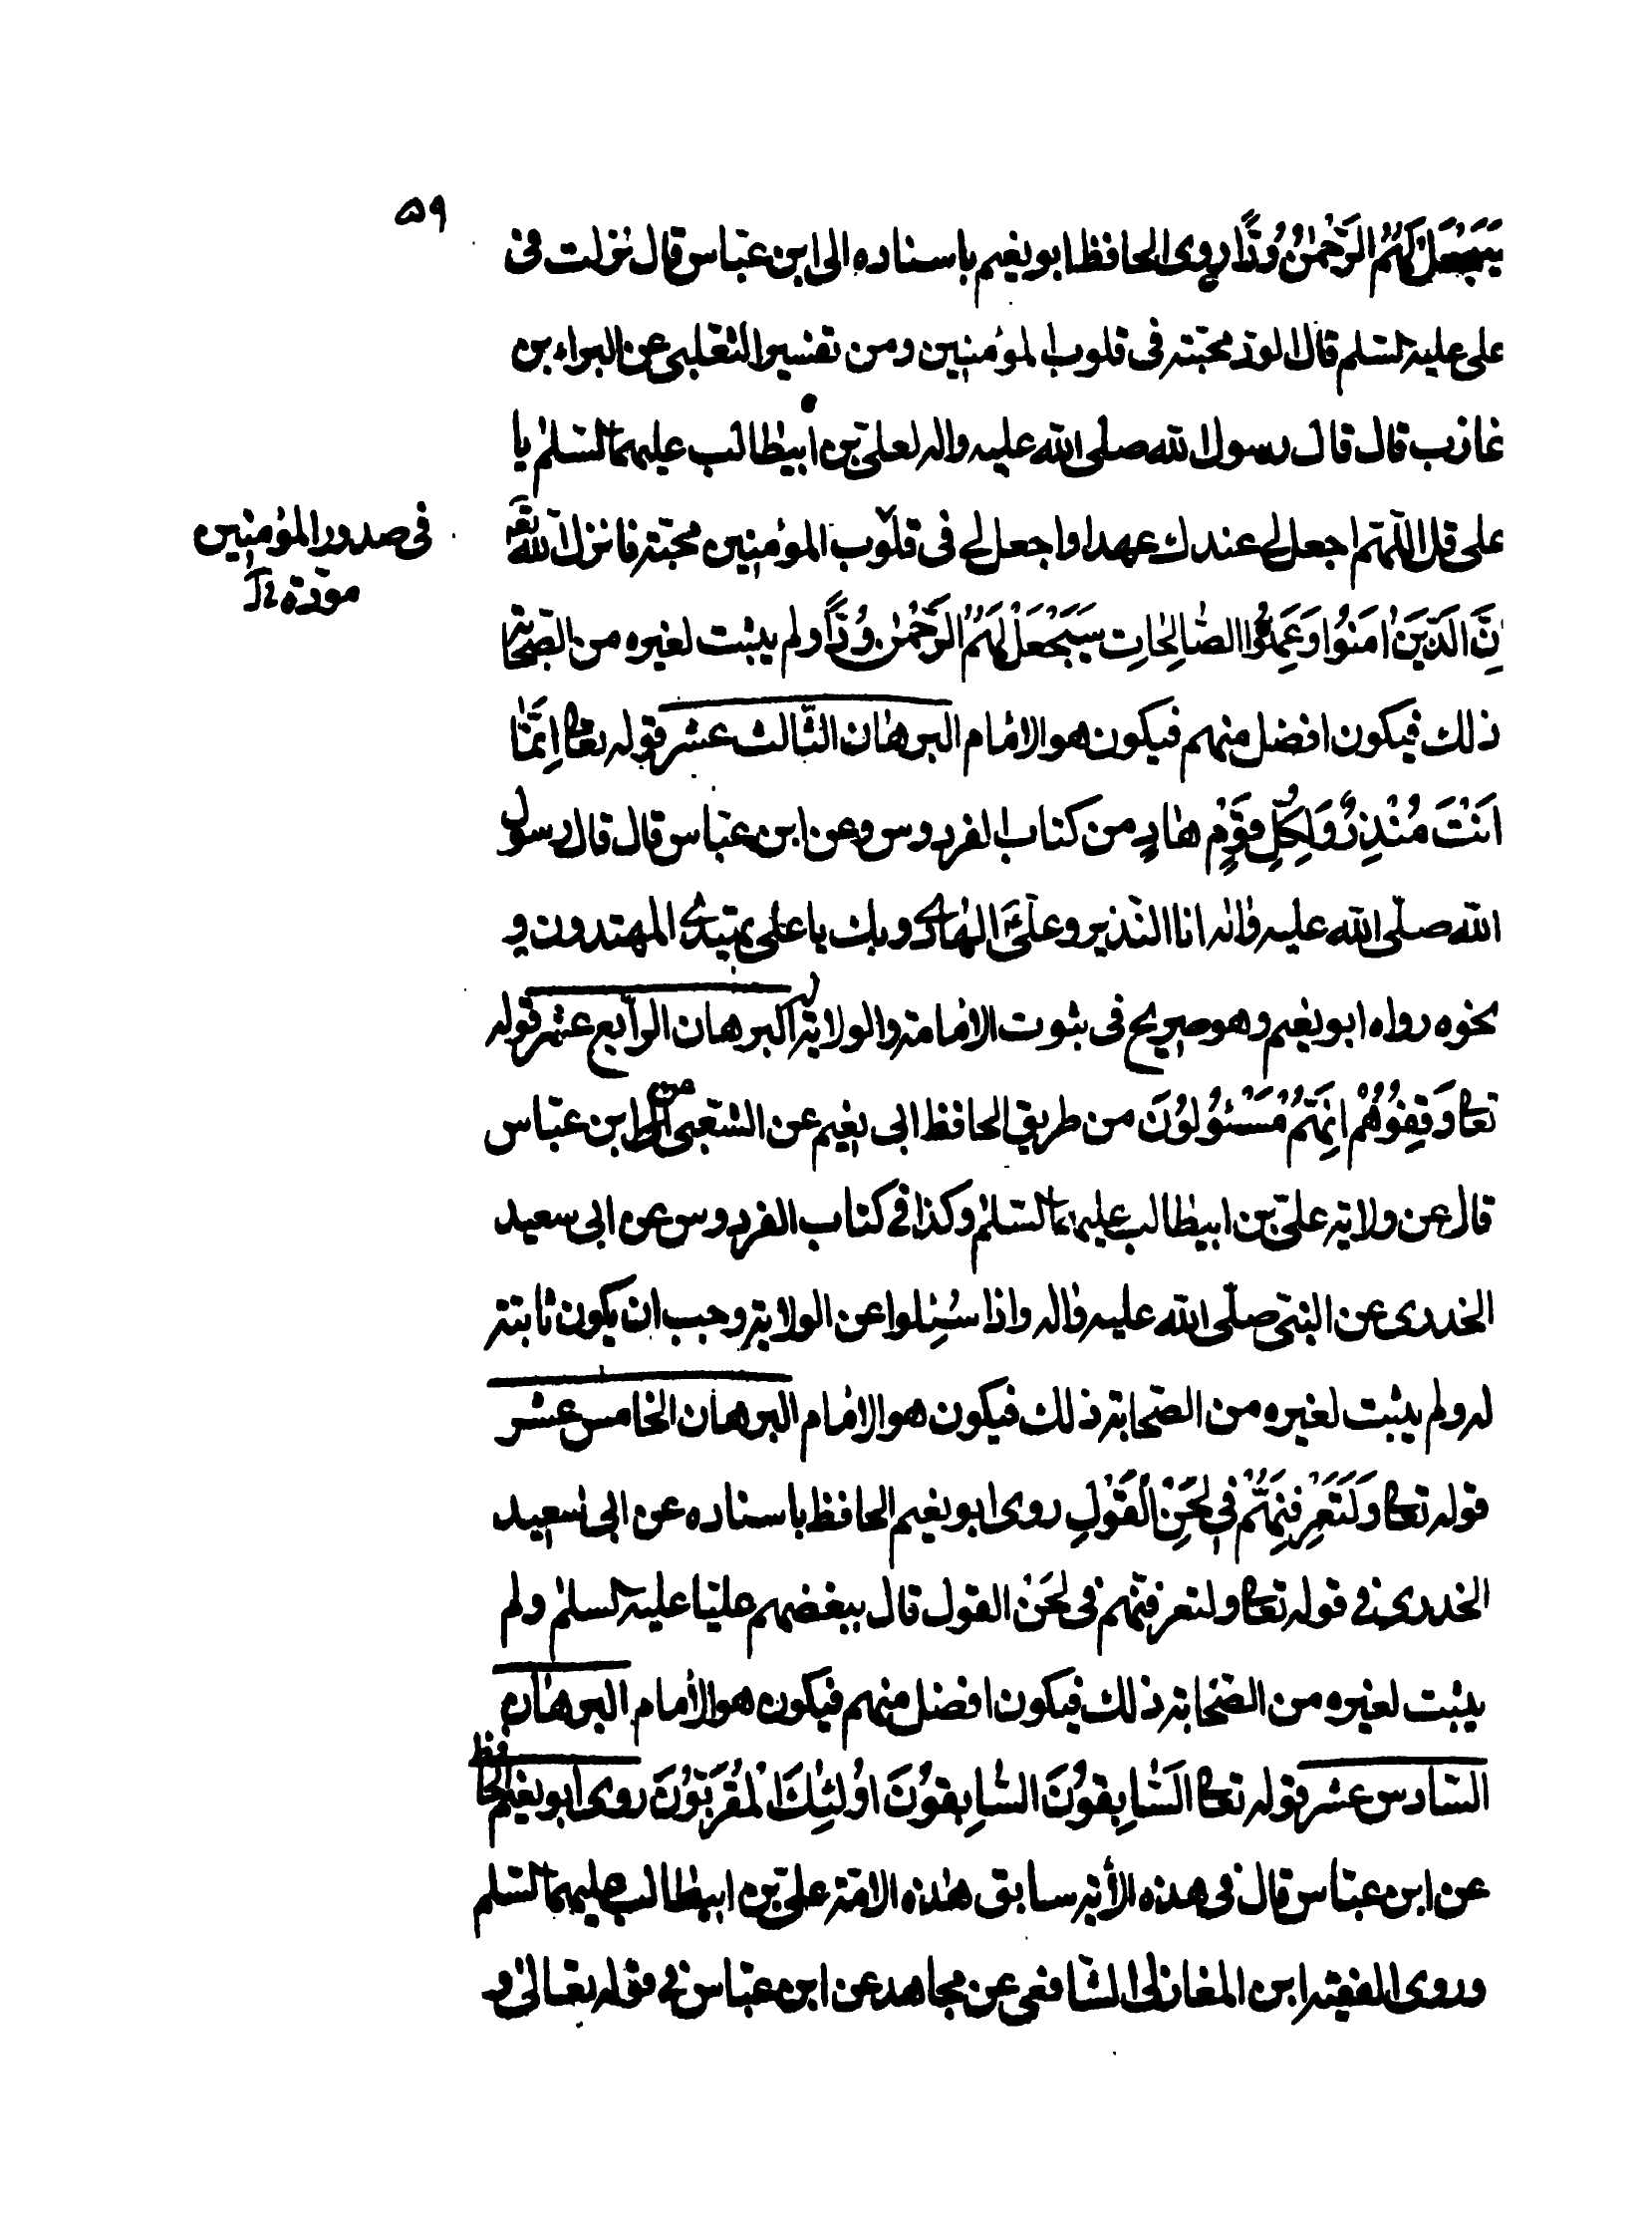 ٥٩
سَيَجْعَلُ لَهُمُ الرَّحْمٰنُ وُدًّا روى الحافظ ابو نعيم باسناده الى ابن عبّاس قال نزلت فى
على عليه السلم قال الودّ محبّته فى قلوب المؤمنين ومن تفسير الثعلبى عن البراء بن
عازب قال قال رسول الله صلى الله عليه واله لعلىّ بن ابيطالب عليهما السلم يا
على قل اللّهمّ اجعل لى عندك عهدا واجعل لى فى قلوب المؤمنين محبّة فانزل الله تعا
فى صدور المؤمنين
مودّة خ ل
اِنَّ الَّذِيْنَ اٰمَنُوا وَعَمِلُوا الصّالِحٰاتِ سَيَجْعَلُ لَهُمُ الرَّحْمٰنُ وُدًّا ولم يثبت لغيره من الصّحابة
ذلك فيكون افضل منهم فيكون هو الامام البرهان الثّالث عشر قوله تعا اِنَّمٰا
اَنْتَ مُنْذِرٌ وَلِكُلِّ قَوْمٍ هٰادٍ من كتاب الفردوس وعن ابن عبّاس قال قال رسول
الله صلّى الله عليه واله انا النّذير وعلىّ الهادى وبك يا على يهتدى المهتدون و
نحوه رواه ابو نعيم وهو صريح فى ثبوت الامامة والولاية له البرهان الرّابع عشر قوله
تعا وَقِفُوْهُمْ اِنَّهُمْ مَسْئُولُوْنَ من طريق الحافظ ابى نعيم عن الشّعبى عن ابن عبّاس
قال عن ولاية علىّ بن ابيطالب عليهما السّلم وكذا فى كتاب الفردوس عن ابى سعيد
الخدرى عن النبىّ صلّى الله عليه واله واذا سُئِلوا عن الولاية وجب ان يكون ثابتة
له ولم يثبت لغيره من الصّحابة ذلك فيكون هو الامام البرهان الخامس عشر
قوله تعا وَلَتَعْرِفَنَّهُمْ فِى لَحْنِ الْقَوْلِ روى ابو نعيم الحافظ باسناده عن ابى سعيد
الخدرى فى قوله تعا ولتعرفنّهم فى لَحْن القول قال ببغضهم عليّا عليه السلم ولم
يثبت لغيره من الصّحابة ذلك فيكون افضل منهم فيكون هو الأمام البرهان
السّادس عشر قوله تعا اَلسّٰابِقُوْنَ السّٰابِقُوْنَ اُولٰئِكَ الْمُقَرَّبُوْنَ روى ابو نعيم الحافظ
عن ابن عبّاس قال فى هذه الأية سابق هذه الامّة علىّ بن ابيطالب عليهما السّلم
وروى الفقيه ابن المغازلى الشّافعى عن مجاهد عن ابن عبّاس فى قوله تعالى و